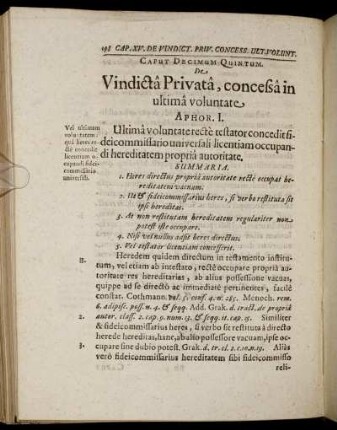 198 CAP. XV. DE VINDICT. PRIV. CONCESS. ULT. VOLUNT.
CAPUT DECIMUM QUINTUM.
De
Vindictâ Privatâ, concessâ in
ultimâ voluntate
APHOR. I.
Vel ultimam
volun
quâ
die concedit
licentiam
occupandi fidei
commissario
universali.
Ultimâ voluntate rectè testator concedit fi-
deicommissario universali licentiam occupan-
di hereditatem propriâ autoritate.
SUMMARIA.
1. Heres directus propriâ autoritate rectè occupat he-
reditatem vacuam.
2. Ut & fideicommissarius heres, si verbo restituta sit
ipsi hereditas.
3. At non restitutam hereditatem regulariter non
potest iste occupare.
4. Nisi nolit adire heres directus.
5. Vel testator licentiam concesserit.
1. Heredem quidem directum in testamento institu-
tum, vel etiam ab intestato, rectè occupare propriâ au-
toritate res hereditarias, ab alius possessione vacuas,
quippe ad se directò ac immediatè pertineries, facilè
constat. Cothmann. vol. 5. cons. 4. n. 285. Menoch. rem.
6. adipisc. poss. n. 4. & seqq. Add. Grak. d. tract. de propriâ
autor. class. 2. cap. 9. num. 13. & seqq. it. cap. 13. Similiter
2. & fideicommissarius heres, si verbo sit restituta à directo
herede hereditas, hanc, ab alio possessore vacuam, ipse oc-
3. cupare sine dubio potest. Grak. d. tr. cl. 2. c. 10. n. 13. Aliàs
verò fideicommissarius hereditatem sibi fideicommisso
reli-